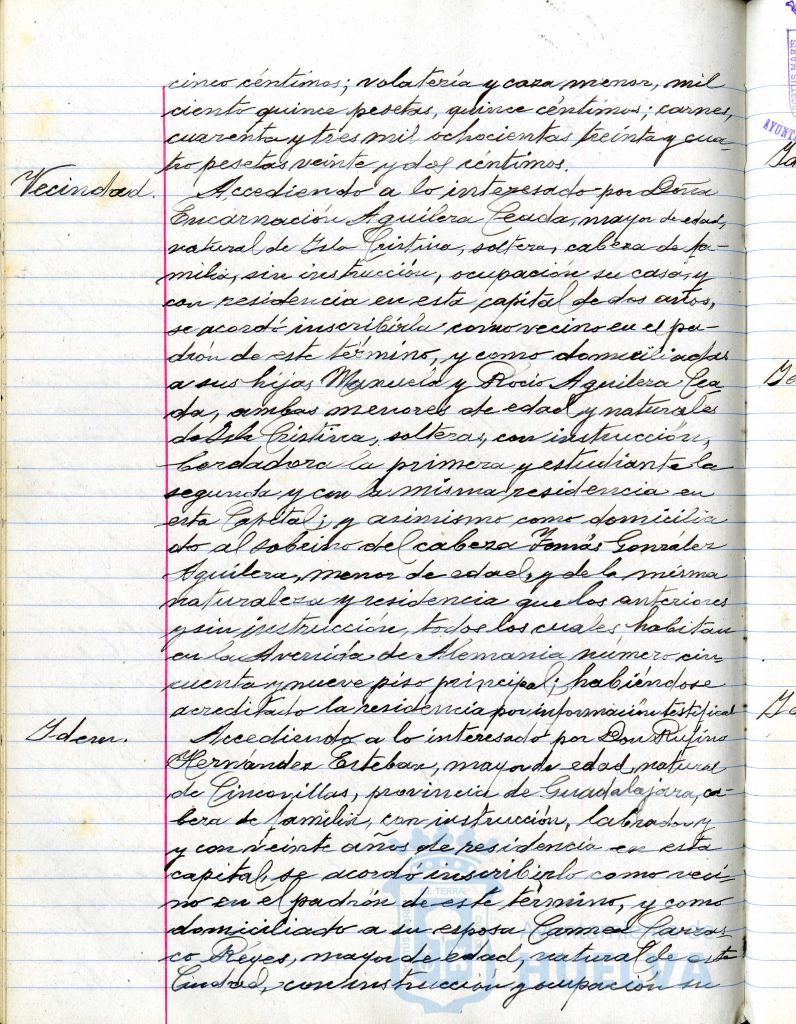 cinco céntimos; volatería y caza menor, mil
ciento quince pesetas, quince céntimos; carnes,
cuarenta y tres mil ochocientas treinta y cua-
tro pesetas veinte y dos céntimos.
Vecindad.
Accediendo a lo interesado por Doña
Encarnación Aguilera Ceada, mayor de edad,
natural de Isla Cristina, soltera, cabeza de fa-
milia, sin instrucción, ocupación su casa, y
con residencia en esta capital de dos años,
se acordó inscribirla como vecino en el pa-
drón de este término, y como domiciliadas
a sus hijas Manuela y Rocío Aguilera Cea-
da, ambas menores de edad y naturales
de Isla Cristina, solteras, con instrucción,
bordadora la primera y estudiante la
segunda y con la misma residencia en
esta Capital; y asimismo como domicilia
do al sobrino del cabeza Tomás González
Aguilera, menor de edad, y de la misma
naturaleza y residencia que los anteriores
y sin instrucción, todos los cuales habitan
en la Avenida de Alemania número cin-
cuenta y nueve piso principal; habiéndose
acreditado la residencia por información testifical
Idem.
Accediendo a lo interesado por Don Rufino
Hernández Esteban, mayor de edad, natural
de Cincovillas, provincia de Guadalajara, ca-
beza de familia, con instrucción, labrador y
y con veinte años de residencia en esta
capital, se acordó inscribirlo como veci-
no en el padrón de este término, y como
domiciliado a su esposa Carmen Carras
co Reyes, mayor de edad, natural de esta
Ciudad, con instrucción y ocupación su
HUELVA